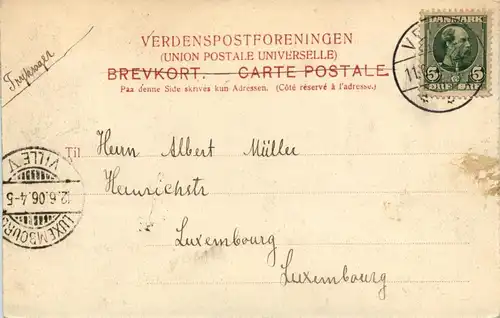 VERDENSPOSTFORENINGEN
(UNION POSTALE UNIVERSELLE)
BREVKORT. — CARTE POSTALE.
Paa denne Side skrives kun Adressen. (Côté réservé à l'adresse.)
Tryksager
DANMARK
5 5
ØRE
VE
11.
Til Herrn Albert Müller
Heinrichstr
Luxembourg
Luxembourg
VILLE V
12.6.06.4-5
LUXEMBOURG